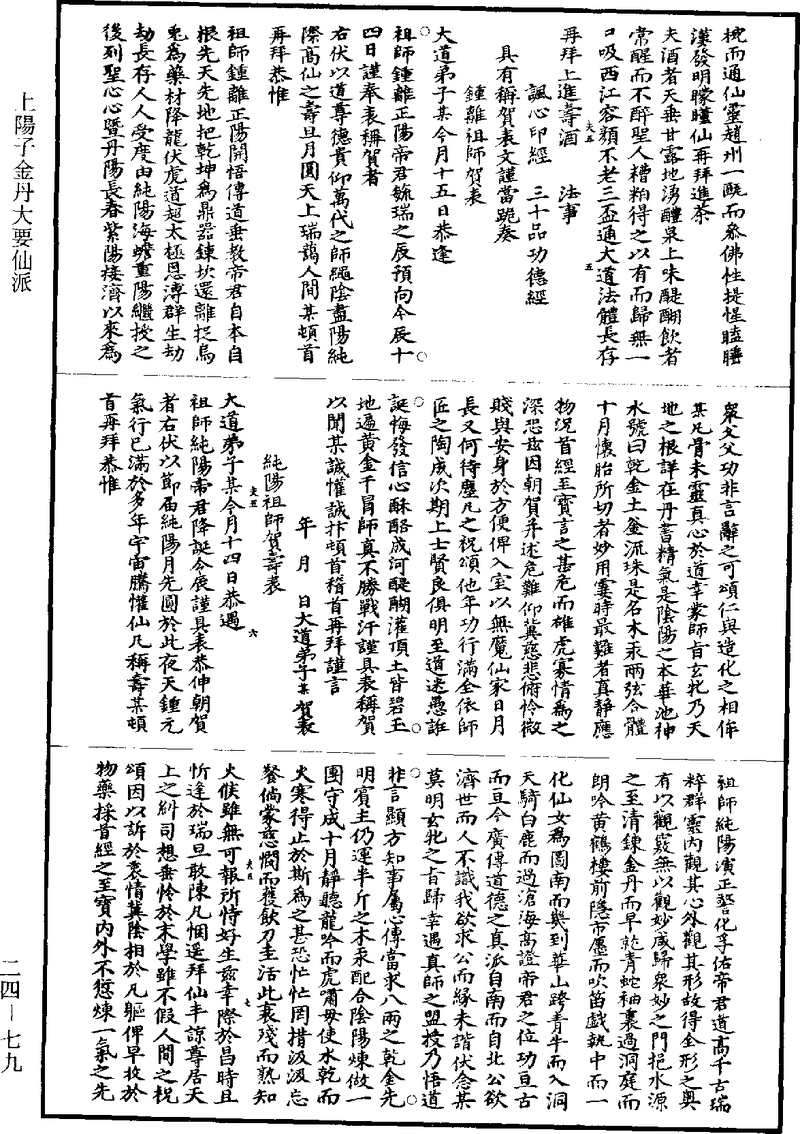 挽而通仙靈趙州一甌而參佛性提惺瞌睡
漢發明矇瞳仙再拜進茶
夫酒者天垂甘露地湧醴泉上味醍醐飲者
常醒而不醉聖人糟粕得之以有而歸無一
口吸西江容顏不老三盃通大道法體長存
再拜上進壽酒　法事
諷心印經　三十品功德經
具有稱賀表文謹當跪奏
鍾離祖師賀表
大道弟子某今月十五日恭逢
祖師鍾離正陽帝君毓瑞之辰預向今辰十
四日謹奉表稱賀者
右伏以道尊德貴仰萬代之師繩陰盡陽純
際高仙之壽旦月圓天上瑞藹人間某頓首
再拜恭惟
祖師鍾離正陽開悟傳道垂教帝君自本自
根先天先地把乾坤為鼎器鍊坎還離捉烏
兔為藥材降龍伏虎道超太極恩溥群生劫
劫長存人人受度由純陽海蟾重陽繼授之
後列聖心心暨丹陽長春紫陽接濟以來為
眾父父功非言辭之可頌仁與造化之相侔
某凡骨未靈真心於道幸蒙師旨玄牝乃天
地之根詳在丹書精氣是陰陽之本華池神
水號曰乾金土釜流珠是名木汞兩弦合體
十月懷胎所切者妙用霎時最難者真靜應
物況首經至寶言之甚危而雌虎寡情為之
深恐茲因朝賀并述危難仰冀慈悲俯怜微
賤與安身於方便俾入室以無魔仙家日月
長又何待塵凡之祝頌他年功行滿全依師
匠之陶成次期上士賢良俱明至道迷愚誑
誕悔發信心酥酪成河醍醐灌頂土皆碧玉
地遍黃金干冒師真不勝戰汗謹具表稱賀
以聞某誠懽誠忭頓首稽首再拜謹言
年　月　日大道弟子某賀表
純陽祖師賀壽表
大道弟子某今月十四日恭遇
祖師純陽帝君降誕令辰謹具表恭伸朝賀
者右伏以節届純陽月先圓於此夜天鍾元
氣行已滿於多年宇宙騰懽仙凡稱壽某頓
首再拜恭惟
祖師純陽演正警化孚佑帝君道高千古瑞
粹群靈內觀其心外觀其形故得全形之奧
有以觀竅無以觀妙咸歸衆妙之門挹水源
之至清鍊金丹而早乾青蛇袖裏過洞庭而
朗吟黃鶴樓前隱市廛而吹笛戲執中而一
化仙女為圖南而幾到華山跨青牛而入洞
天騎白鹿而過滄海高證帝君之位功亘古
而亘今廣傳道德之真派自南而自北公欲
濟世而人不識我欲求公而緣未諧伏念某
莫明玄牝之旨歸幸遇真師之盟授乃悟道
非言顯方知事屬心傳當求八兩之乾金先
明賓主仍運半斤之木汞配合陰陽煉做一
團守成十月靜聽龍吟而虎嘯毋使水乾而
火寒得止於斯為之甚恐忙忙罔措汲汲忘
餐倘蒙慈憫而獲飲刀圭活此衰殘而熟知
火候雖無可報所恃好生茲幸際於昌時且
忻逢於瑞旦敢陳凡悃遥拜仙丰諒尊居天
上之糾司想垂怜於末學雖不假人間之祝
頌因以訴於衷情冀陰相於凡軀俾早投於
物藥採首經之至寶內外不愆煉一氣之先
夫五
五
夫五
六
夫五
七
上陽子金丹大要仙派
二四－七九